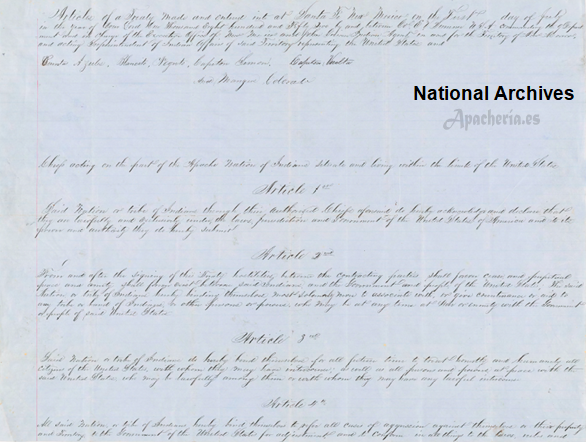 Articles of a Treaty made and entered into at Santa Fe New Mexico on the First day of July
in the year of our Lord One Thousand Eight Hundred and Fifty
and acting Superintendent of Indian Affairs of said Territory representing the United States and
Capitan Simon,
and Mangus Colorado
National Archives
Apacheria.es
Chiefs acting on the part of the Apache Nation of Indians situate and living within the limits of the United States
Article 1st
Said Nation or tribe of Indians through their authorized Chiefs aforesaid do hereby acknowledge and declare that
they are lawfully and exclusively under the laws, jurisdiction and government of the United States of America and to its
power and authority they do hereby submit.
Article 2nd
From and after the signing of this Treaty hostilities between the contracting parties shall forever cease and perpetual
peace and amity shall forever exist between said Indians and the Government and people of the United States. The said
Nation or tribe of Indians hereby binding themselves most solemnly never to associate with or give countenance or aid to
any tribe or band of Indians, or other persons or powers, who may be at any time at war or enmity with the Government
& people of said United States.
Article 3rd
Said Nation or tribe of Indians do hereby bind themselves for all future time to treat honestly and humanely all
citizens of the United States, with whom they may have intercourse; as well as all persons and powers at peace with the
said United States who may be lawfully among them or with whom they may have any lawful intercourse
Article 4th
All said Nation or tribe of Indians hereby bind themselves to refer all cases of aggression against themselves or their property
and Territory to the Government of the United States for adjustment and to conform in all things to the laws, rules and